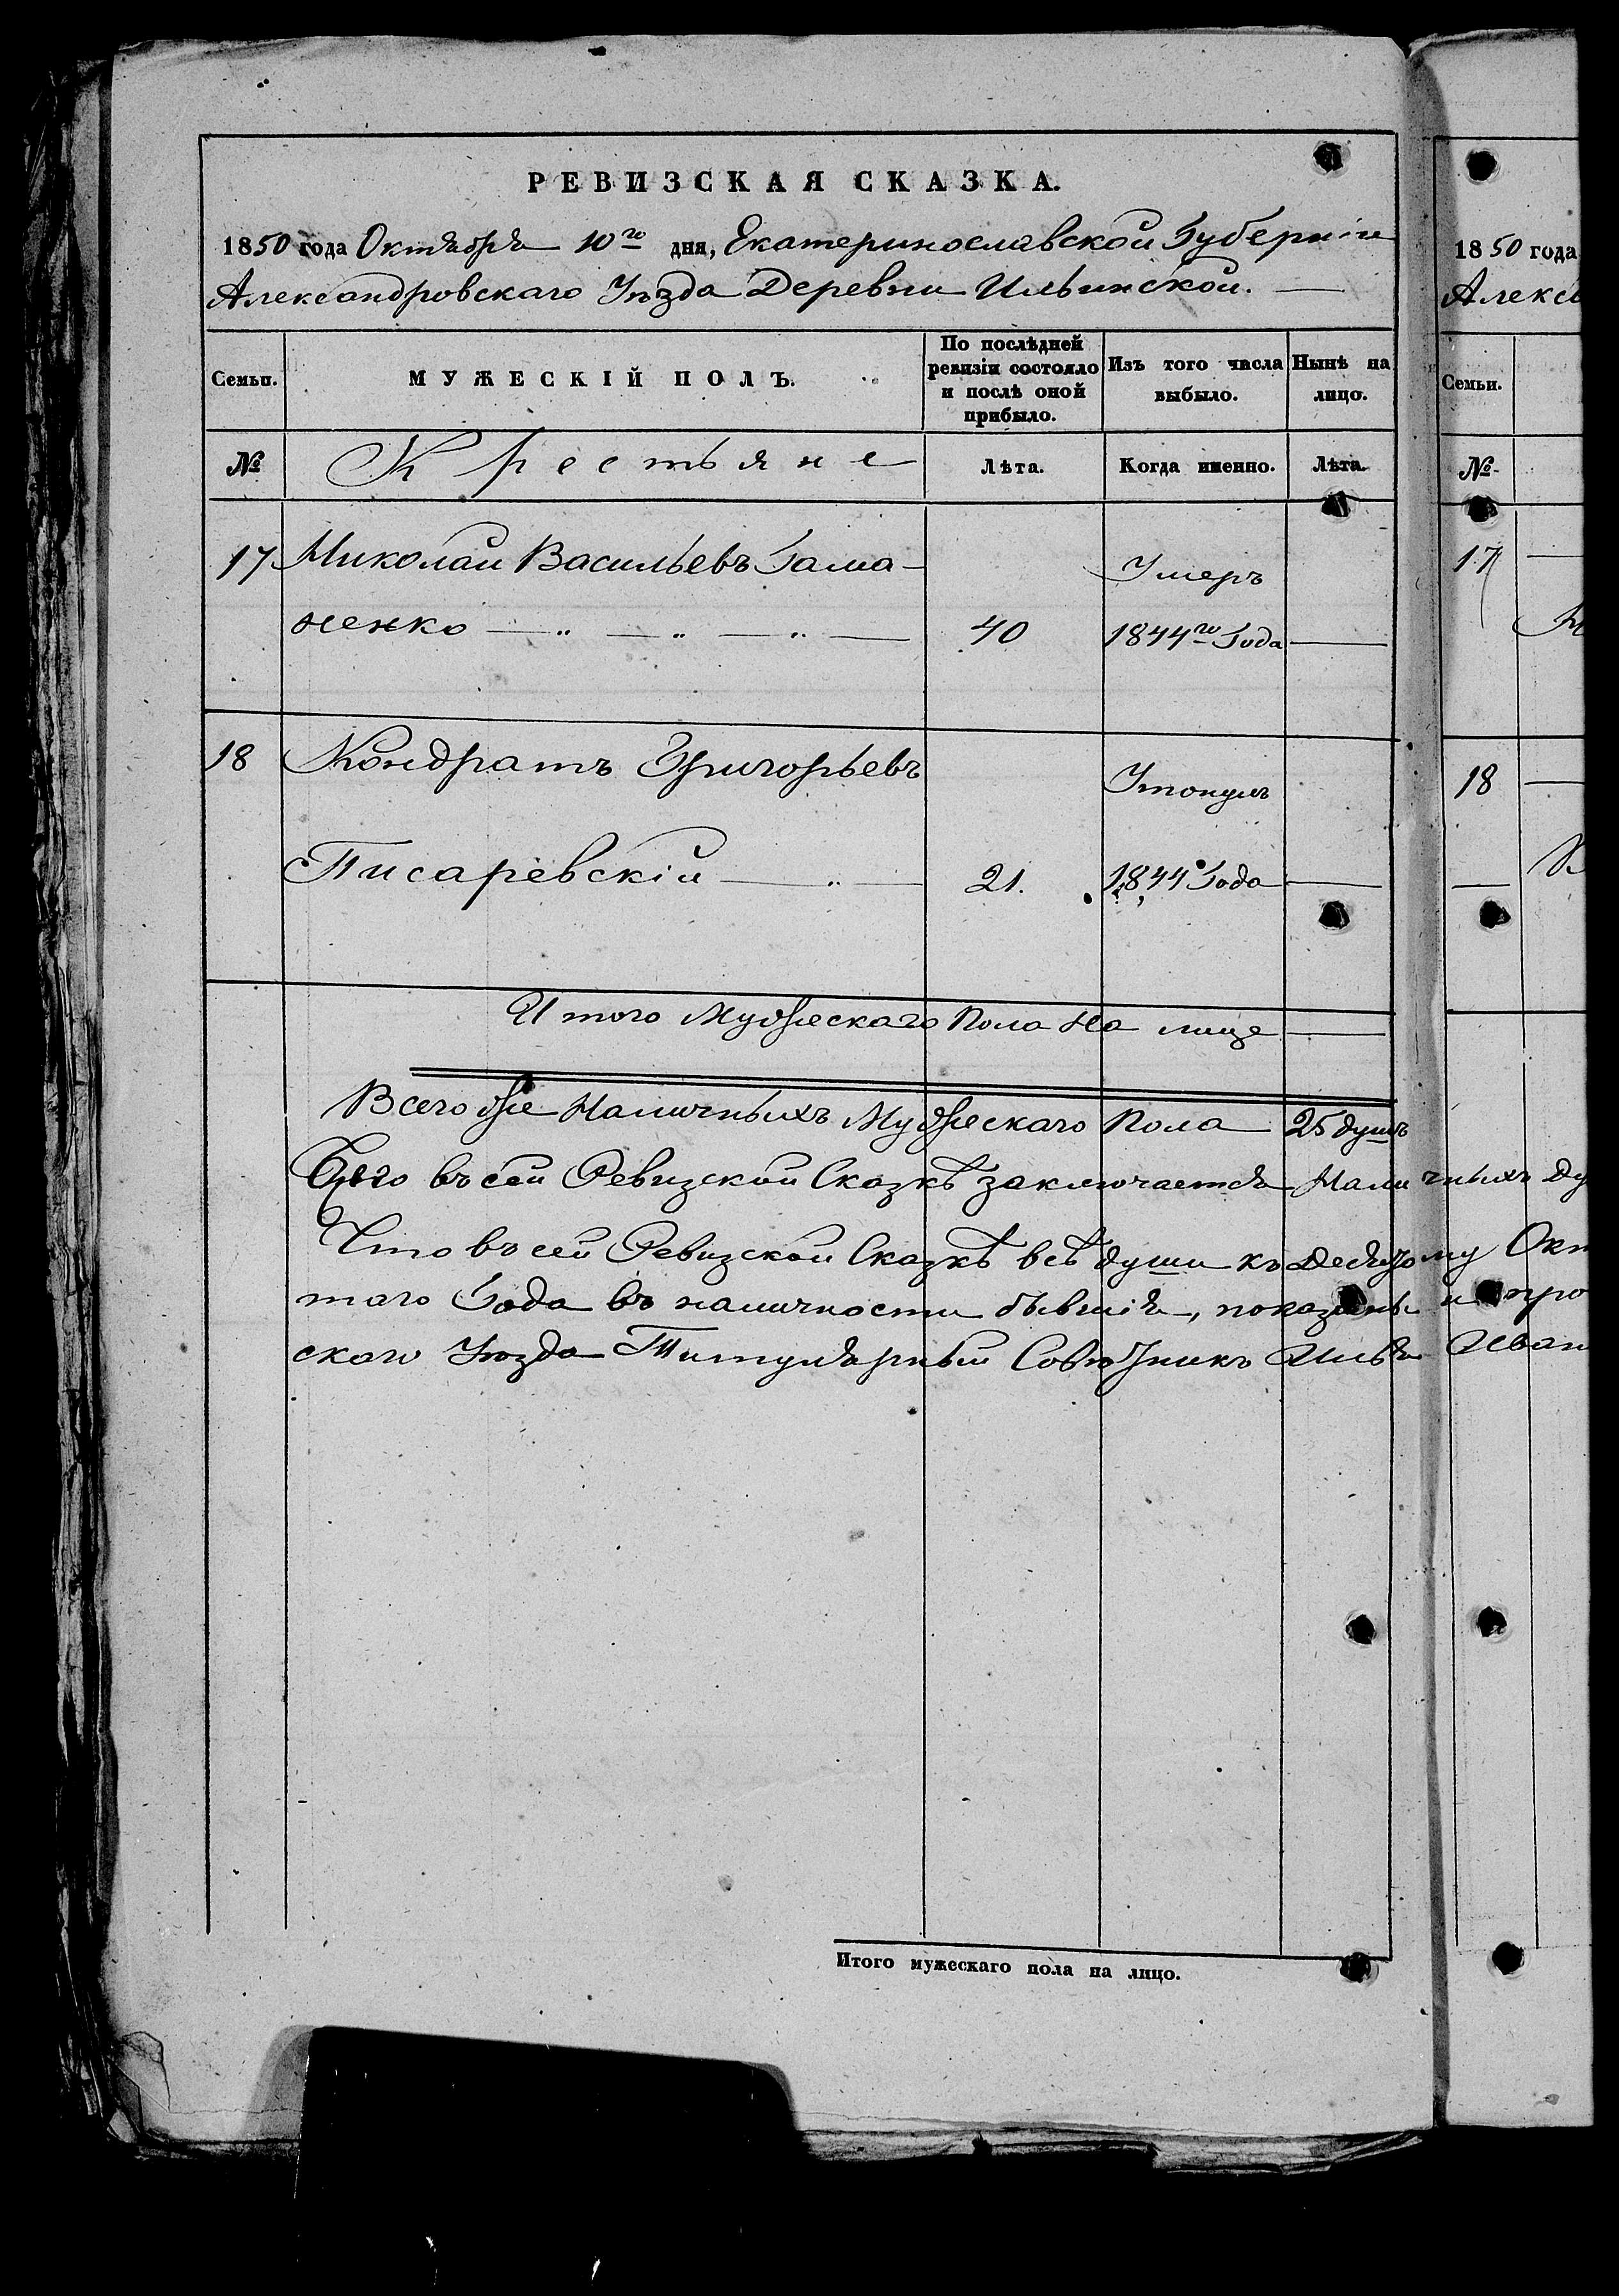 РЕВИЗСКАЯ СКАЗКА.
1850 года Октября 10го дня, Екатеринославской Губернии
Александровскаго Уѣзда Деревни Ильинской.
Семьи. МУЖЕСКІЙ ПОЛЪ. По послѣдней ревизіи состояло и послѣ оной прибыло. Изъ того числа выбыло. Нынѣ на лицо.
№ Крестьяне Лѣта. Когда именно. Лѣта.
17 Николай Васильевъ Гама- Умеръ
ненко 40 1844го Года
18 Кондратъ Григорьевъ Утонулъ
Писаревскій 21. 1844 Года
Итого Мужескаго Пола на лице
Всего же Наличныхъ Мужескаго Пола 25 душъ
Всего въ сей Ревизской Сказкѣ заключается Наличныхъ Ду
Что въ сей Ревизской Сказкѣ всѣ души къ Десятому Окт
таго Года въ наличности бывшія, показаны и про
скаго Уѣзда Титулярный Совѣтникъ Илья Иван
Итого мужескаго пола на лицо.
1850 года
Алекса
Семьи.
№
17
18